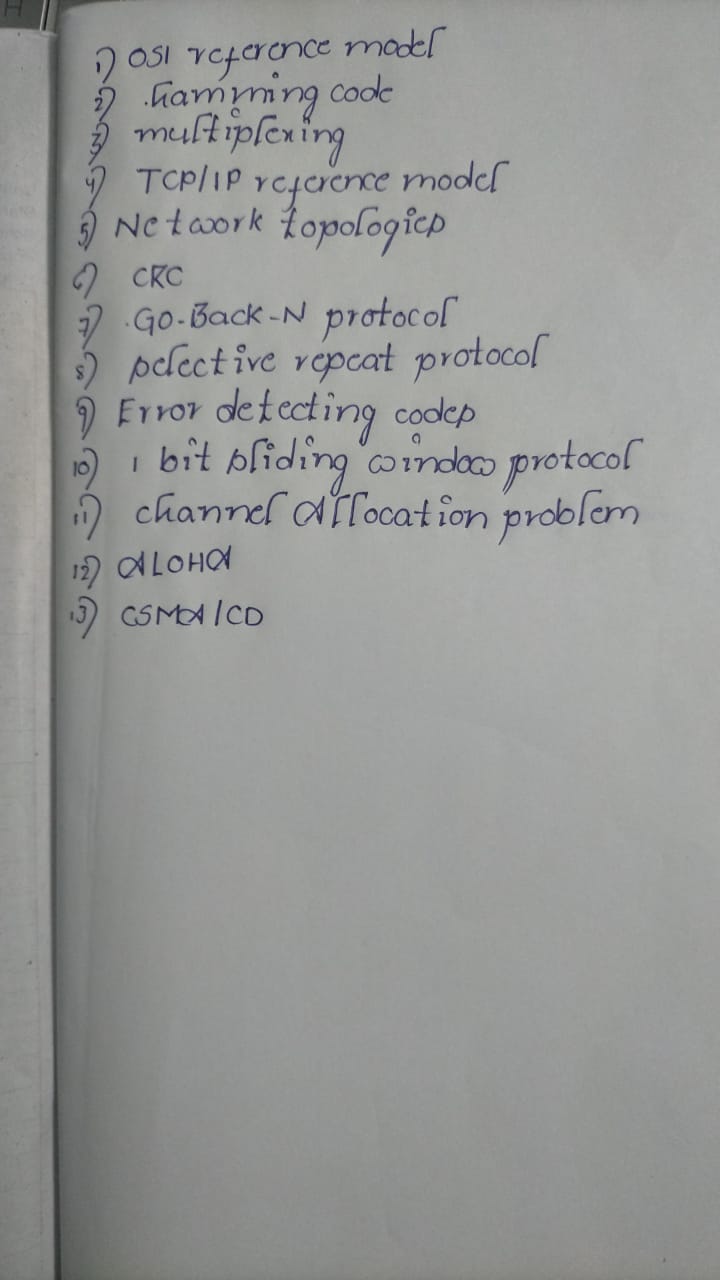 1) OSI reference model
2) hamming code
3) multiplexing
4) TCP/IP reference model
5) Network topologies
6) CRC
7) Go-Back-N protocol
8) selective repeat protocol
9) Error detecting codes
10) 1 bit sliding window protocol
11) channel allocation problem
12) ALOHA
13) CSMA/CD